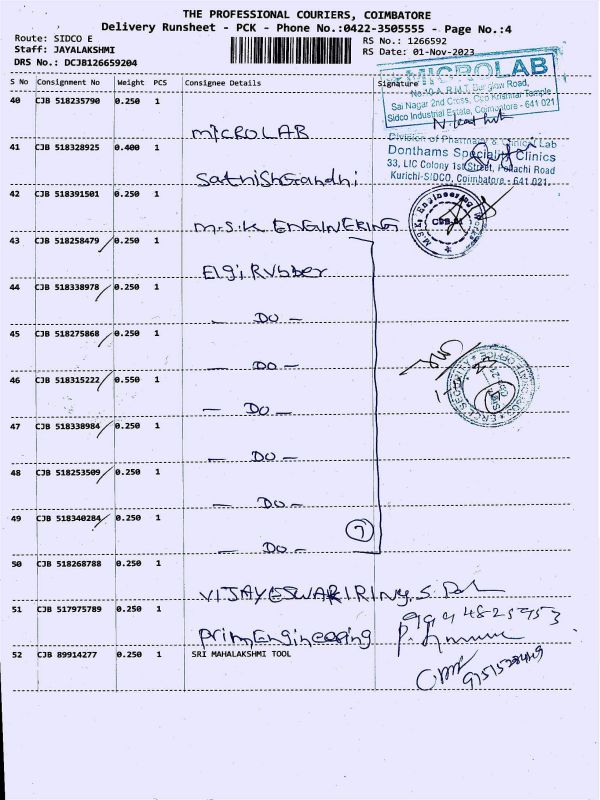 THE PROFESSIONAL COURIERS, COIMBATORE
Delivery Runsheet - PCK - Phone No.:0422-3505555 - Page No.:4
Route: SIDCO E
RS No.: 1266592
Staff: JAYALAKSHMI
RS Date: 01-Nov-2023
DRS No.: DCJB126659204
S No Consignment No Weight PCS Consignee Details Signature
MICROLAB
Sai Nagar 2nd Cross,
Sidco Industrial Estate, Coimbatore - 641 021
40 CJB 518235790 0.250 1
MICROLAB
Division of Pharmacy & Clinical Lab
Donthams Speciality Clinics
33, LIC Colony 1st Street, Pollachi Road
Kurichi-SIDCO, Coimbatore - 641 021.
41 CJB 518328925 0.400 1
Sathish Gandhi
42 CJB 518391501 0.250 1
M.S.K ENGINEERING
M.S.K. Engineering Works
43 CJB 518258479 0.250 1
Elgi Rubber
44 CJB 518338978 0.250 1
— DO —
45 CJB 518275868 0.250 1
— DO —
46 CJB 518315222 0.550 1
— DO —
47 CJB 518338984 0.250 1
— DO —
48 CJB 518253509 0.250 1
— DO —
49 CJB 518340284 0.250 1
7
— DO —
50 CJB 518268788 0.250 1
VIJAYESWARI RING
51 CJB 517975789 0.250 1
Prim Engineering
52 CJB 89914277 0.250 1 SRI MAHALAKSHMI TOOL